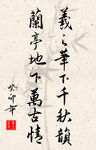 羲之筆下千秋韻
蘭亭地下萬古情
癸卯年